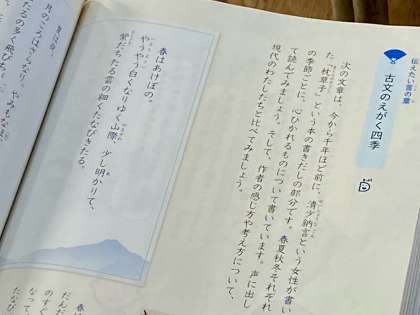 伝えたい言の葉
古文のえがく四季
次の文章は、今から千年ほど前に、清少納言という女性が書い
た「枕草子」という本の書きだしの部分です。春夏秋冬それぞれ
の季節ごとに、心ひかれるものについて書いています。声に出し
て読んでみましょう。そして、作者の感じ方や考え方について、
現代のわたしたちと比べてみましょう。
春はあけぼの。
やうやう白くなりゆく山際、少し明かりて、
紫だちたる雲の細くたなびきたる。
夏は夜。
月のころはさらなり、やみもなほ、
たるの多く飛びちがひ